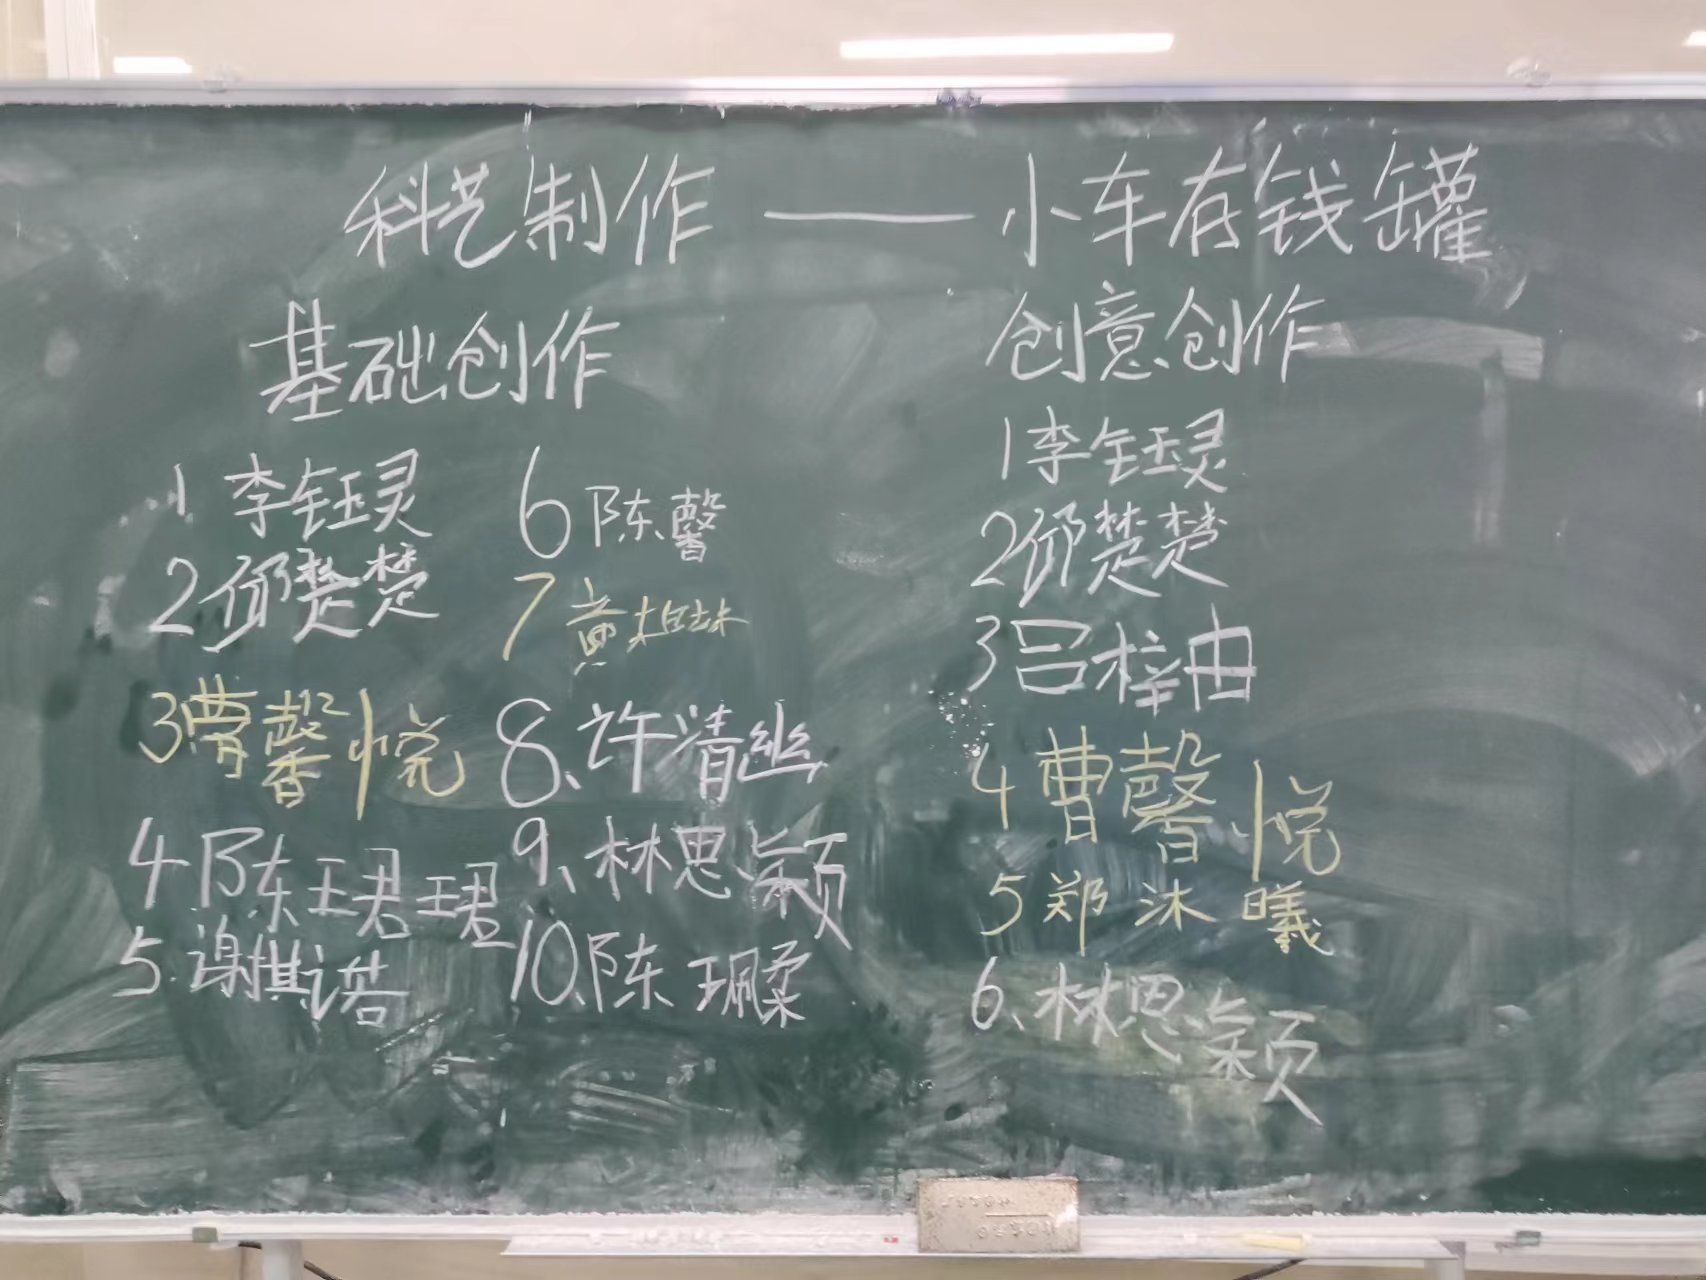 科艺制作——小车存钱罐
基础创作
1 李钰灵
2 邱楚楚
3 曹馨悦
4 陈珺珺
5. 谢棋诺
6 陈馨
7 黄
8、许清丝
9、林思颖
10、陈珮柔
创意创作
1 李钰灵
2 邱楚楚
3 吕梓曲
4 曹馨悦
5 郑沐曦
6、林思颖